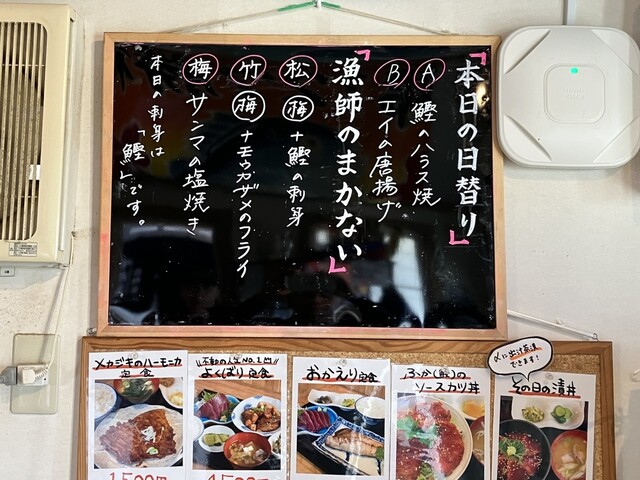 「本日の日替り」
Ⓐ 鰹のハラス焼
Ⓑ エイの唐揚げ
「漁師のまかない」
松 梅+鰹の刺身
竹 梅+モウカザメのフライ
梅 サンマの塩焼き
本日の刺身は
「鰹」です。
メカジキのハーモニカ
定食
不動の人気NO.1!!!
よくばり定食
おかえり定食
ふか(鮫)の
ソースカツ丼
その日の漬丼
できます!